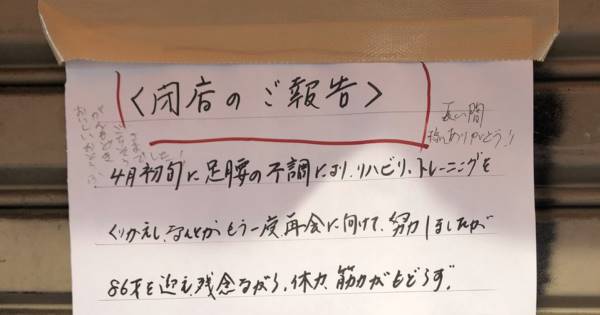 〈閉店のご報告〉
長い間
ありがとう!!
4月初旬に足腰の不調により、リハビリ、トレーニングを
くりかえし、なんとかもう一度、再会に向けて、努力しましたが
86才を迎え、残念ながら、体力、筋力がもどらず。